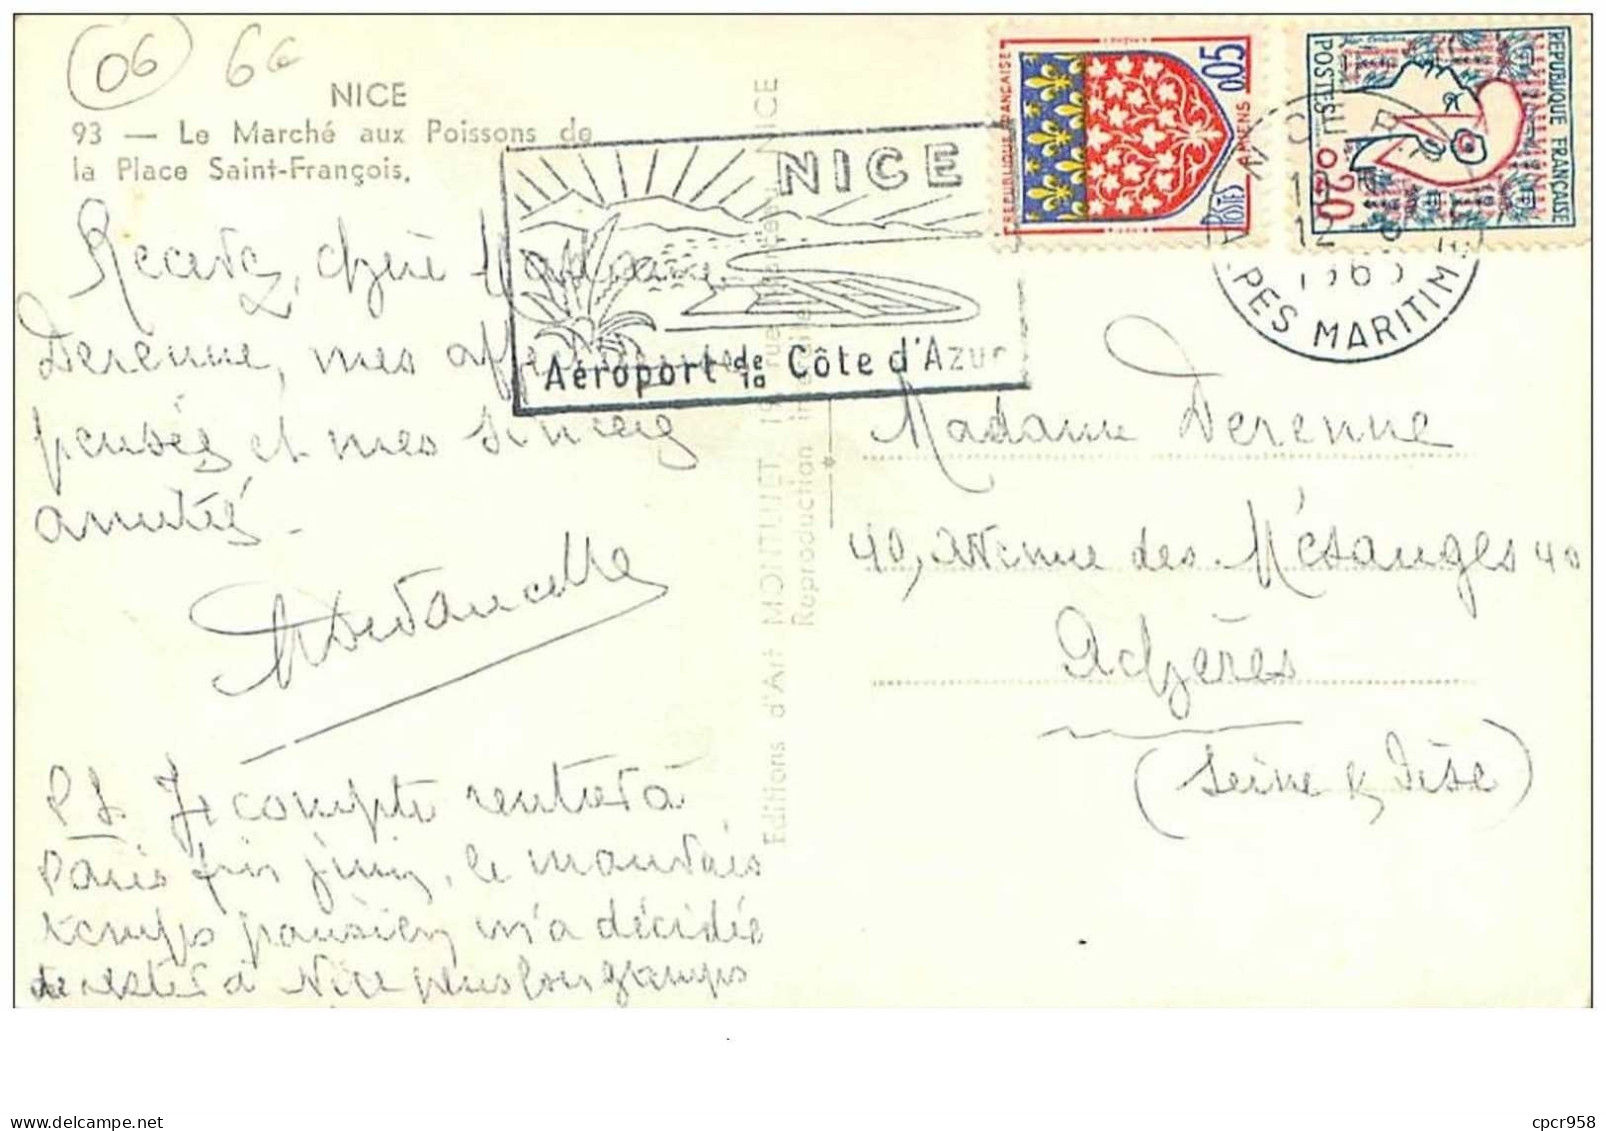 06 66
NICE
93 — Le Marché aux Poissons de
la Place Saint-François.
Recevez, chère Madame
Derenne, mes affectueuses
pensées et mes sincères
amitiés -
P S. Je compte rentrer à
Paris fin juin, le mauvais
temps parisien m'a décidée
de rester à Nice plus longtemps
NICE
Aéroport de la Côte d'Azur
Editions d'Art MONTLUET, 19, rue NICE
Reproduction interdite
REPUBLIQUE FRANÇAISE
0,05
AMIENS
POSTES
REPUBLIQUE FRANÇAISE
POSTES
0,20
NICE R.P.
12 - 6
1963
ALPES MARITIMES
Madame Derenne
40, avenue des Mésanges 40
Achères
(Seine & Oise)
cpcr958